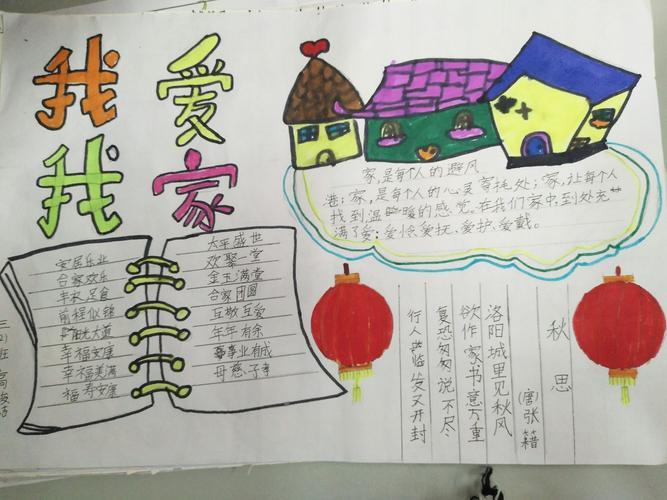 我爱
我家
家,是每个人的避风
港;家,是每个人的心灵寄托处;家,让每个人
找到温暖的感觉。在我们家中,到处充
满了爱:爱惜、爱抚、爱护、爱戴。
安居乐业
合家欢乐
丰衣足食
前程似锦
阳光大道
幸福安康
幸福美满
福寿安康
太平盛世
欢聚一堂
金玉满堂
合家团圆
互敬互爱
年年有余
事业有成
母慈子孝
秋思
(唐)张籍
洛阳城里见秋风
欲作家书意万重
复恐匆匆说不尽
行人临发又开封
三(2)班